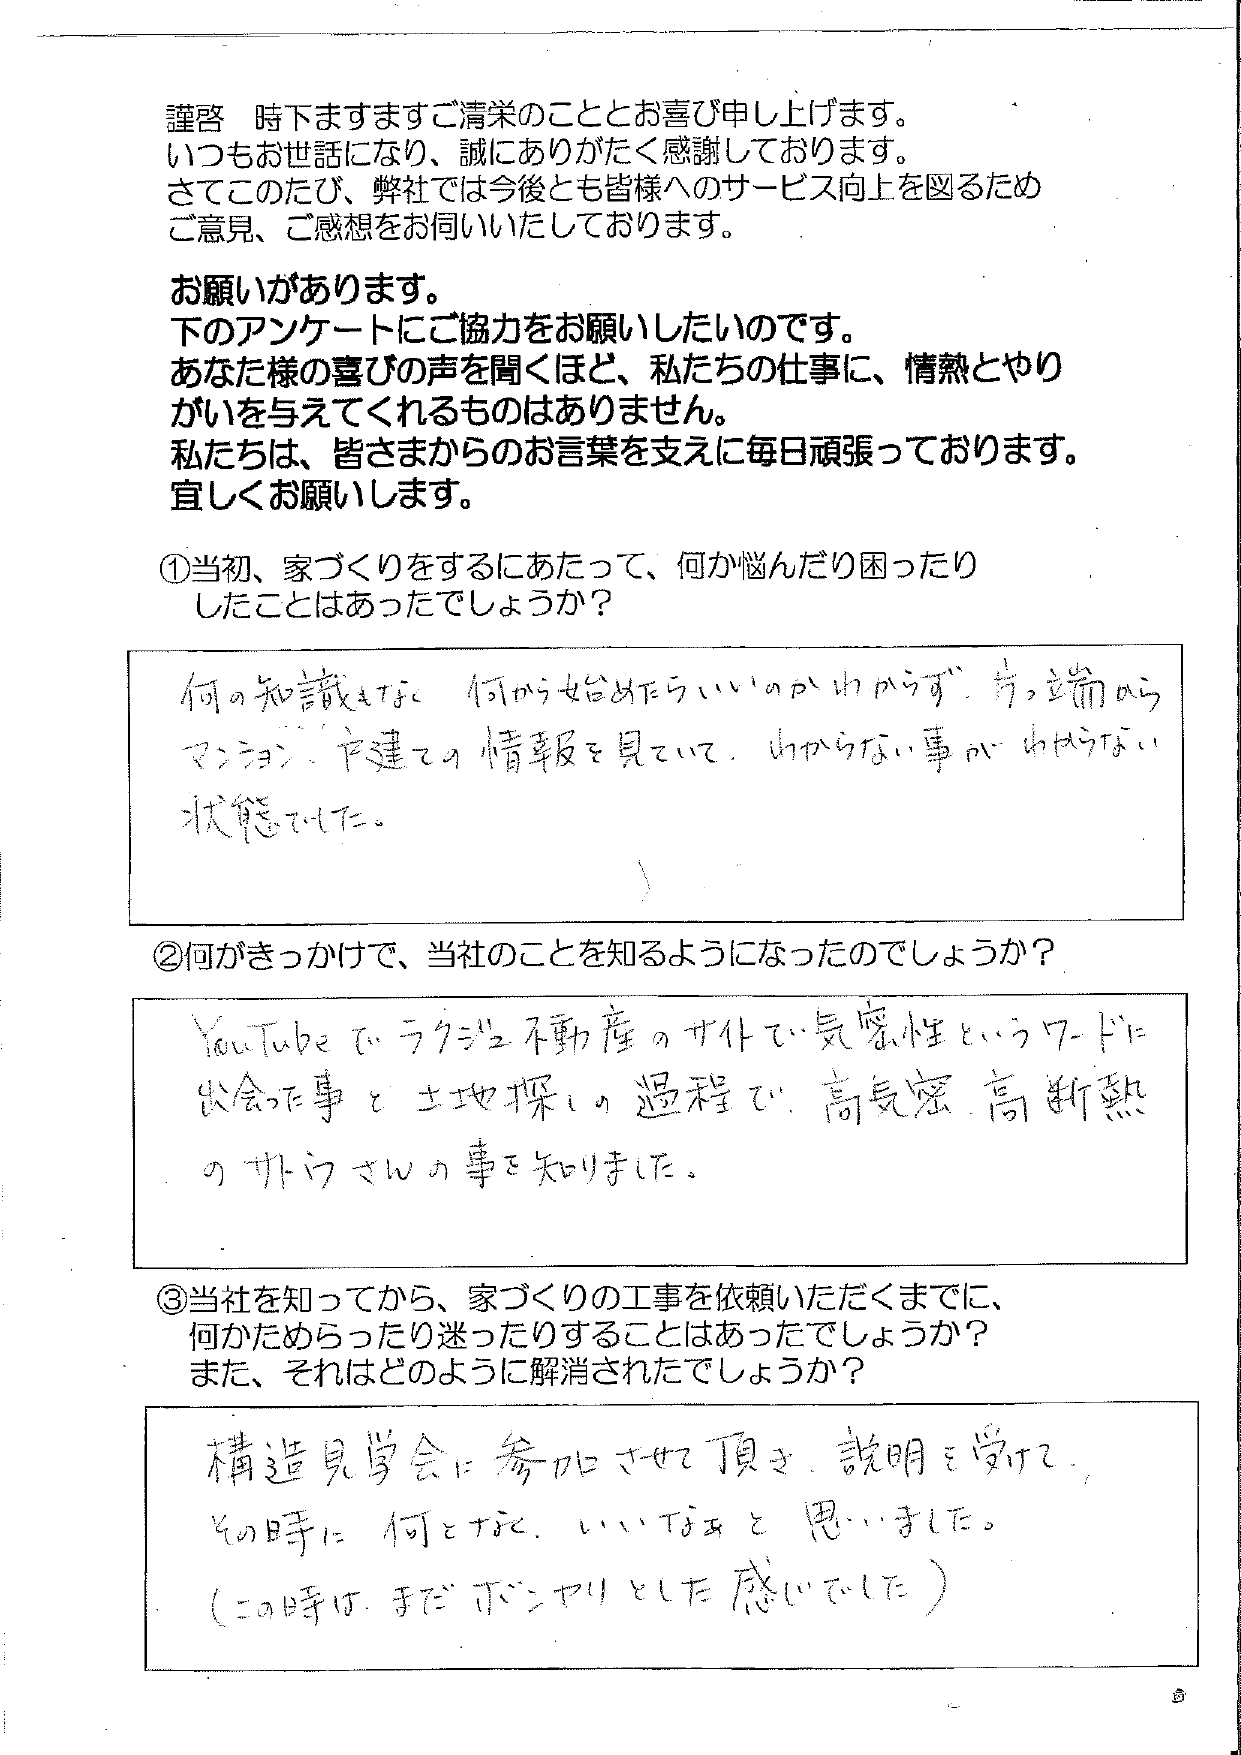 謹啓　時下ますますご清栄のこととお喜び申し上げます。
いつもお世話になり、誠にありがたく感謝しております。
さてこのたび、弊社では今後とも皆様へのサービス向上を図るため
ご意見、ご感想をお伺いいたしております。
お願いがあります。
下のアンケートにご協力をお願いしたいのです。
あなた様の喜びの声を聞くほど、私たちの仕事に、情熱とやり
がいを与えてくれるものはありません。
私たちは、皆さまからのお言葉を支えに毎日頑張っております。
宜しくお願いします。
①当初、家づくりをするにあたって、何か悩んだり困ったり
したことはあったでしょうか？
何の知識もなく 何から始めたらいいのかわからず、片っ端から
マンション、戸建ての情報を見ていて、わからない事がわからない
状態でした。
②何がきっかけで、当社のことを知るようになったのでしょうか？
YouTubeでラクジュ不動産のサイトで気密性というワードに
出会った事と土地探しの過程で、高気密、高断熱
のサトウさんの事を知りました。
③当社を知ってから、家づくりの工事を依頼いただくまでに、
何かためらったり迷ったりすることはあったでしょうか？
また、それはどのように解消されたでしょうか？
構造見学会に参加させて頂き、説明を受けて、
その時に 何となく、いいなぁと 思いました。
(この時は、まだボンヤリとした感じでした)